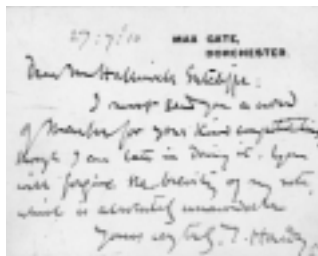 29/7/10
MAX GATE,
DORCHESTER.
Dear Mr Halliwell Sutcliffe:
I must send you a word
of thanks for your kind congratulations
though I am late in doing it. You
will forgive the brevity of my note,
which is absolutely unavoidable
Yours very truly, T. Hardy.